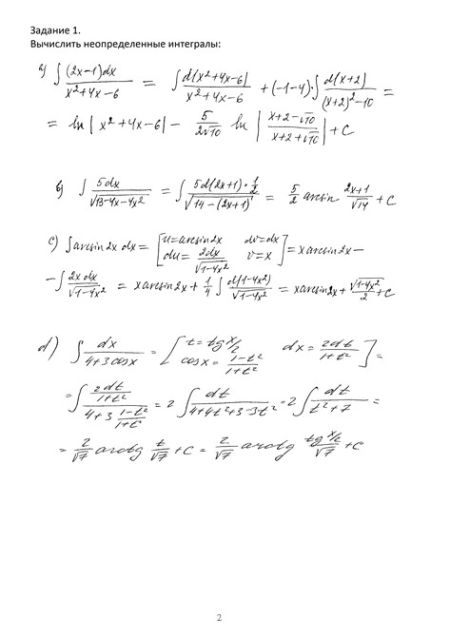 Задание 1.
Вычислить неопределенные интегралы:
a) ∫ (2x−1)dx / (x²+4x−6) = ∫ d(x²+4x−6) / (x²+4x−6) + (−1−4)·∫ d(x+2) / ((x+2)²−10) =
= ln |x²+4x−6| − 5/(2√10) ln |(x+2−√10)/(x+2+√10)| + C
b) ∫ 5dx / √(13−4x−4x²) = ∫ 5d(2x+1)·½ / √(14−(2x+1)²) = 5/2 arcsin (2x+1)/√14 + C
c) ∫ arcsin2x dx = [u=arcsin2x dv=dx
du= 2dx/√(1−4x²) v=x] = x arcsin2x −
− ∫ 2x dx / √(1−4x²) = x arcsin2x + 1/4 ∫ d(1−4x²) / √(1−4x²) = x arcsin2x + √(1−4x²)/2 + C
d) ∫ dx / (4+3cosx) = [t=tg x/2
cosx = (1−t²)/(1+t²) dx = 2dt/(1+t²)] =
= ∫ (2dt/(1+t²)) / (4+3 (1−t²)/(1+t²)) = 2 ∫ dt / (4+4t²+3−3t²) = 2 ∫ dt / (t²+7) =
= 2/√7 arctg t/√7 + C = 2/√7 arctg (tg x/2)/√7 + C
2